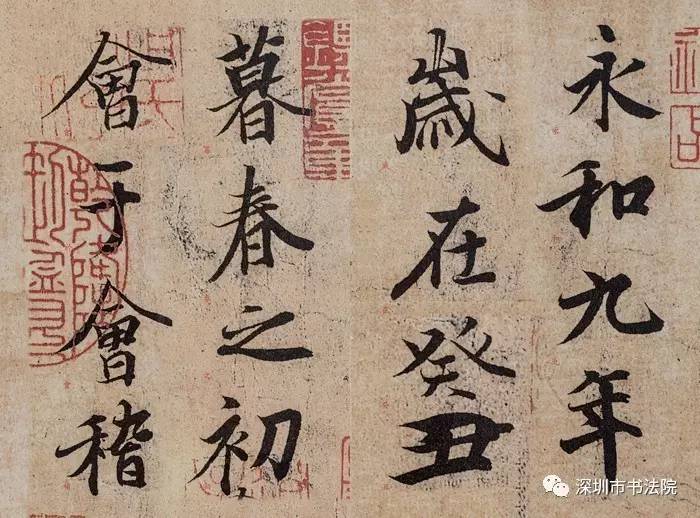 永和九年
歲在癸丑
暮春之初
會于會稽
深圳市书法院